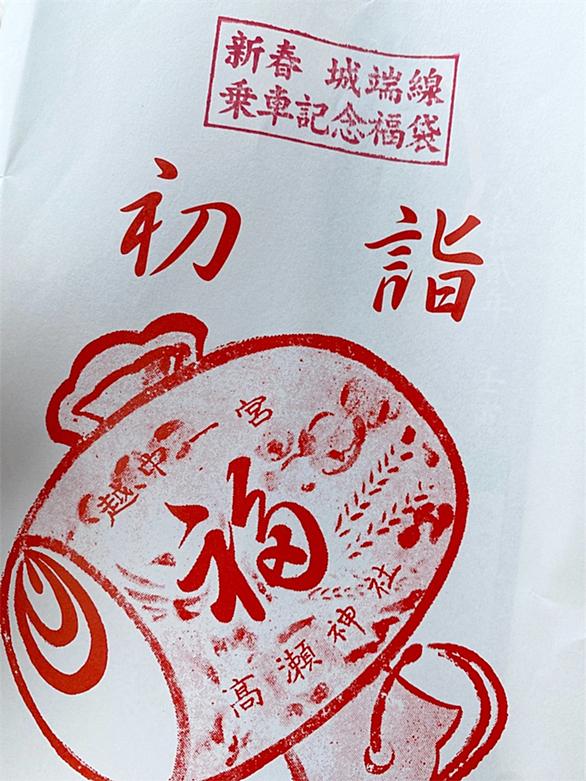 新春 城端線
乗車記念福袋
初詣
越中一宮
福
高瀬神社